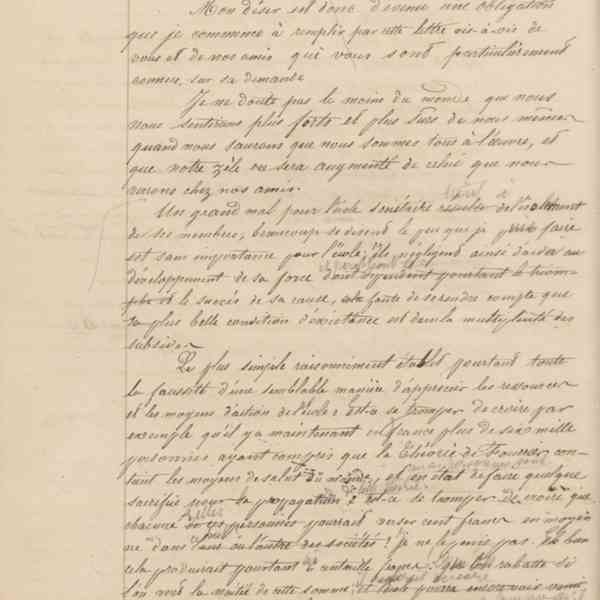 Mon désir est donc devenu une obligation
que je commence à remplir par cette lettre vis-à-vis de
vous et de nos amis qui vous sont particulièrement
connus, sur sa demande
Je ne doute pas le moins du monde que nous
nous sentirons plus forts et plus surs de nous mêmes
quand nous saurons que nous sommes tous à l'œuvre, et
que notre zèle ne sera augmenté de celui que nous
verrons chez nos amis.
Un grand mal pour l'école sociétaire résulte de l'isolement
de ses membres, beaucoup se disent le peu que je puis faire
est sans importance pour l'école, ils négligent ainsi d'aider au
développement de sa force dont dépendent pourtant le triom-
phe et le succès de sa cause, faute de se rendre compte que
sa plus belle condition d'existence est dans la multiplicité des
subsides.
Le plus simple raisonnement établit pourtant toute
la fausseté d'une semblable manière d'apprécier les ressources
et les moyens d'action de l'école : est-ce se tromper de croire par
exemple qu'il y a maintenant en france plus de six mille
personnes ayant compris que la Théorie de Fourier con-
tient les moyens de salut du monde, et en état de faire quelque
sacrifice pour la propagation ? est-ce se tromper de croire que
chacune de ces personnes pourrait verser cent francs en moyen-
ne dans l'une ou l'autre des sociétés ? je ne le pense pas. Eh bien
cela produirait pourtant mille francs ! que l'on rabatte si
l'on veut la moitié de cette somme, et l'école pourra encore voir